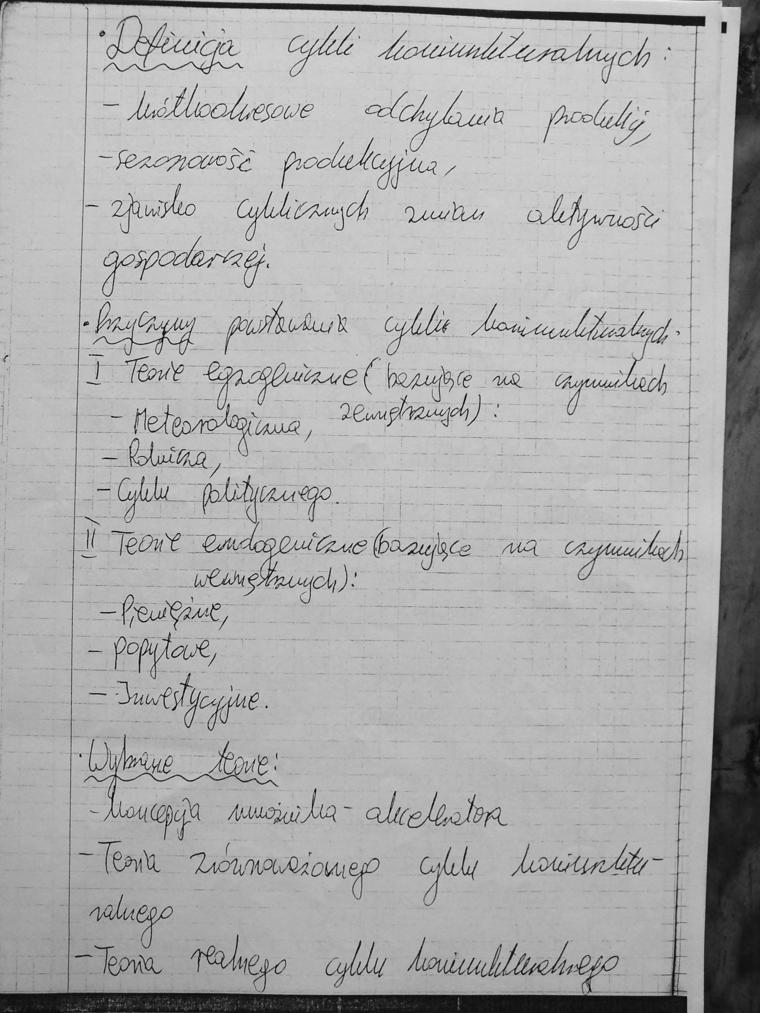 • Definicja cykli koniunkturalnych:
- krótkookresowe odchylenia produkcji,
- sezonowość produkcyjna,
- zjawisko cyklicznych zmian aktywności
gospodarczej.
• Przyczyny powstawania cykli koniunkturalnych.
I Teorie egzogeniczne (bazujące na czynnikach
zewnętrznych):
- Meteorologiczna,
- Rolnicza,
- Cyklu politycznego.
II Teorie endogeniczne (bazujące na czynnikach
wewnętrznych):
- Pieniężne,
- popytowe,
- Inwestycyjne.
• Wybrane teorie:
- koncepcja mnożnika - akceleratora
- Teoria zrównoważonego cyklu koniunktu-
ralnego
- Teoria realnego cyklu koniunkturalnego